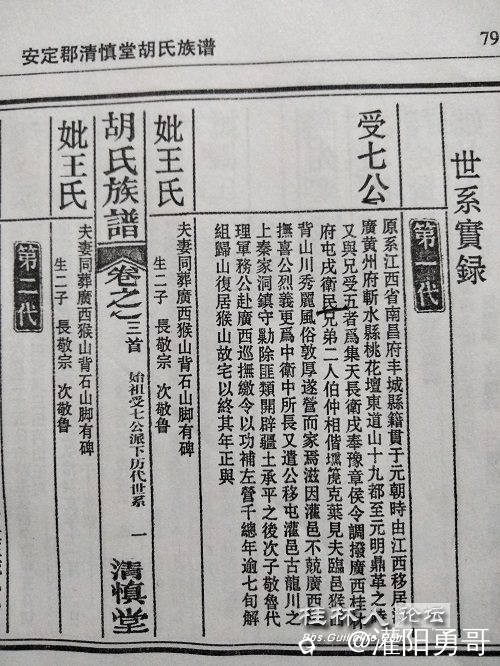 安定郡清慎堂胡氏族谱
79
世系實録
第一代
受七公
原系江西省南昌府丰城縣籍貫于元朝時由江西移居湖
廣黄州府蕲水縣桃花壇東道山十九都至元明鼎革之
又與兄受五者爲集天長衛戍奉豫章侯令調撥廣西桂林
府屯戌衛民兄弟二人伯仲相偕壎篪克葉見夫臨邑猴
背山川秀麗風俗敦厚遂營而家焉滋因灌邑不競廣西
撫喜公烈義更爲中衛中所長又遺公移屯灌邑古龍川之
上秦家洞鎮守剿除匪類開辟疆土承平之後次子敬魯代
理軍務公赴廣西巡撫繳令以功補左營千總年逾七旬解
組歸山復居猴山故宅以終其年正與
妣王氏
夫妻同葬廣西猴山背石山脚有碑
生二子 長敬宗 次敬魯
胡氏族譜
卷之
三首
始祖受七公派下历代世系
一
清慎堂
妣王氏
夫妻同葬廣西猴山背石山脚有碑
生二子 長敬宗 次敬魯
第二代
桂林人论坛
@灌阳勇哥